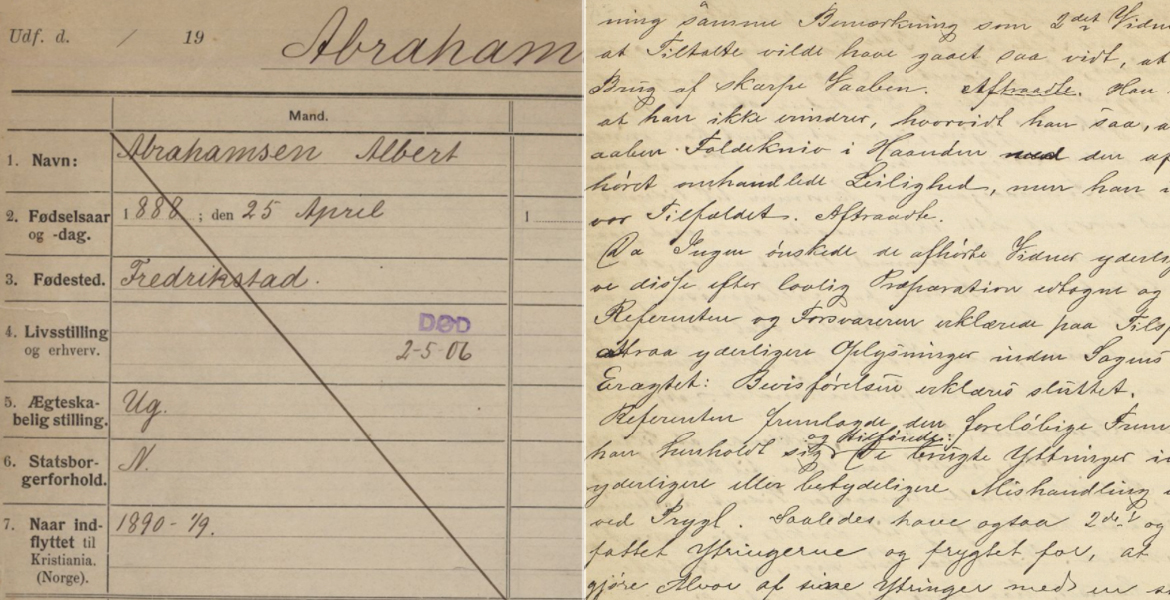 Udf. d. / 19
Abraham
Mand.
1. Navn: Abrahamsen Albert
2. Fødselsaar og -dag. 1888 ; den 25 April 1
3. Fødested. Fredrikstad.
4. Livsstilling og erhverv. DØD
2-5-06
5. Ægteska-
belig stilling. Ug.
6. Statsbor-
gerforhold. N.
7. Naar ind-
flyttet til
Kristiania.
(Norge). 1890 - 1/9.
ning samme Bemærkning som 2det Vidn
at Tiltalte vilde have gaaet saa vidt, at
Brug af skarpe Vaaben. Aftraadte. Han
at han ikke erindrer, hvorvidt han saa, a
aaben Foldekniv i Haanden ved den af
høret omhandlede Leilighed, men han
var Tilfældet. Aftraadte.
Da Ingen ønskede de afhørte Vidner yderli
ve disse efter lovlig Præparation edtagne og
Referenten og Forsvareren erklærede paa Tilsp
attraa yderligere Oplysninger inden Sagens
Eragtet: Bevisførelsen erklæres sluttet.
Referenten fremlagde den foreløbige Frem
og tilføiede:
han henholdt sig De brugte Yttringer i
yderligere eller betydeligere Mishandling
ved Prygl. Saaledes have ogsaa 2det og
fattet Yttringerne og frygtet for, at
gjøre Alvor af sine Yttringer med en s